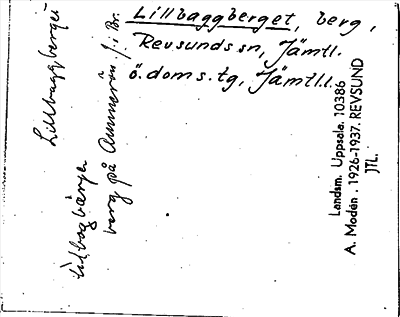 Lillbaggberget, berg,
Revsunds sn, Jämtl.
ö. doms. tg, Jämtl. l.
Lillbaggberget
Lillbagbärje
berg på Ammerön
Landsm. Uppsala. 10386
A. Modén. 1926-1937. REVSUND
JTL.